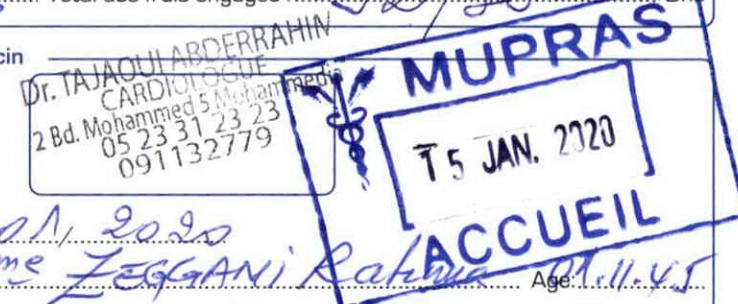 Total des frais engagés
cin
Dr. TAJAOUI ABDERRAHIN
CARDIOLOGUE
2 Bd. Mohammed 5 Mohammedia
05 23 31 23 23
091132779
MUPRAS
15 JAN. 2020
ACCUEIL
01, 2020
me ZEGGANI Rahma Age: 01.11.45